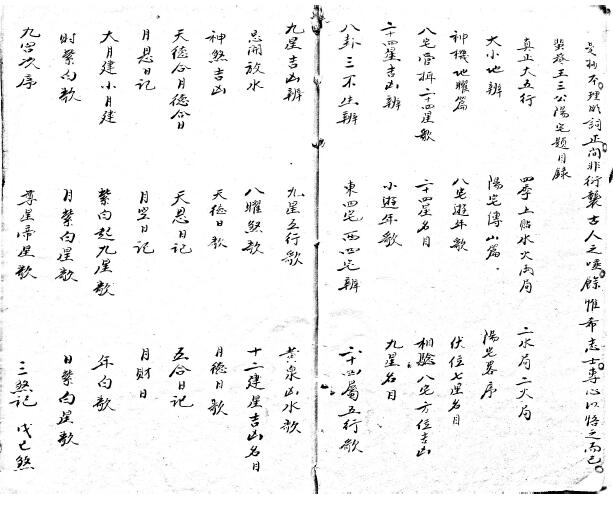 理明詞正間非衍襲古人之唾餘惟希志士專心以悟之而已
王三公陽宅題目錄
真正大五行 四季上貼水火両局 二水局二火局
大小地辨 陽宅傳山篇 陽宅畧序
神機地曜篇 八宅遊年歌 伏位七星名目
八宅管柄二十四星歌 二十四星名目 相驗八宅方位吉凶
二十四星吉凶辨 小遊年歌 九星名目
八卦三不生辨 東四宅西四宅辨 二十四屬五行歌
九星吉凶辨 九星五行歌 黄泉凶水歌
忌開放水 八曜煞歌 十二建星吉凶名目
神煞吉凶 天德日歌 月德日歌
天德合月德合日 天恩日記 五合日記
月恩日記 月空日記 月財日
大月建小月建 紫白起九星歌 年白歌
時紫白歌 月紫白星歌 日紫白星歌
九宮次序 尊星帝星歌 三煞記 戊己煞